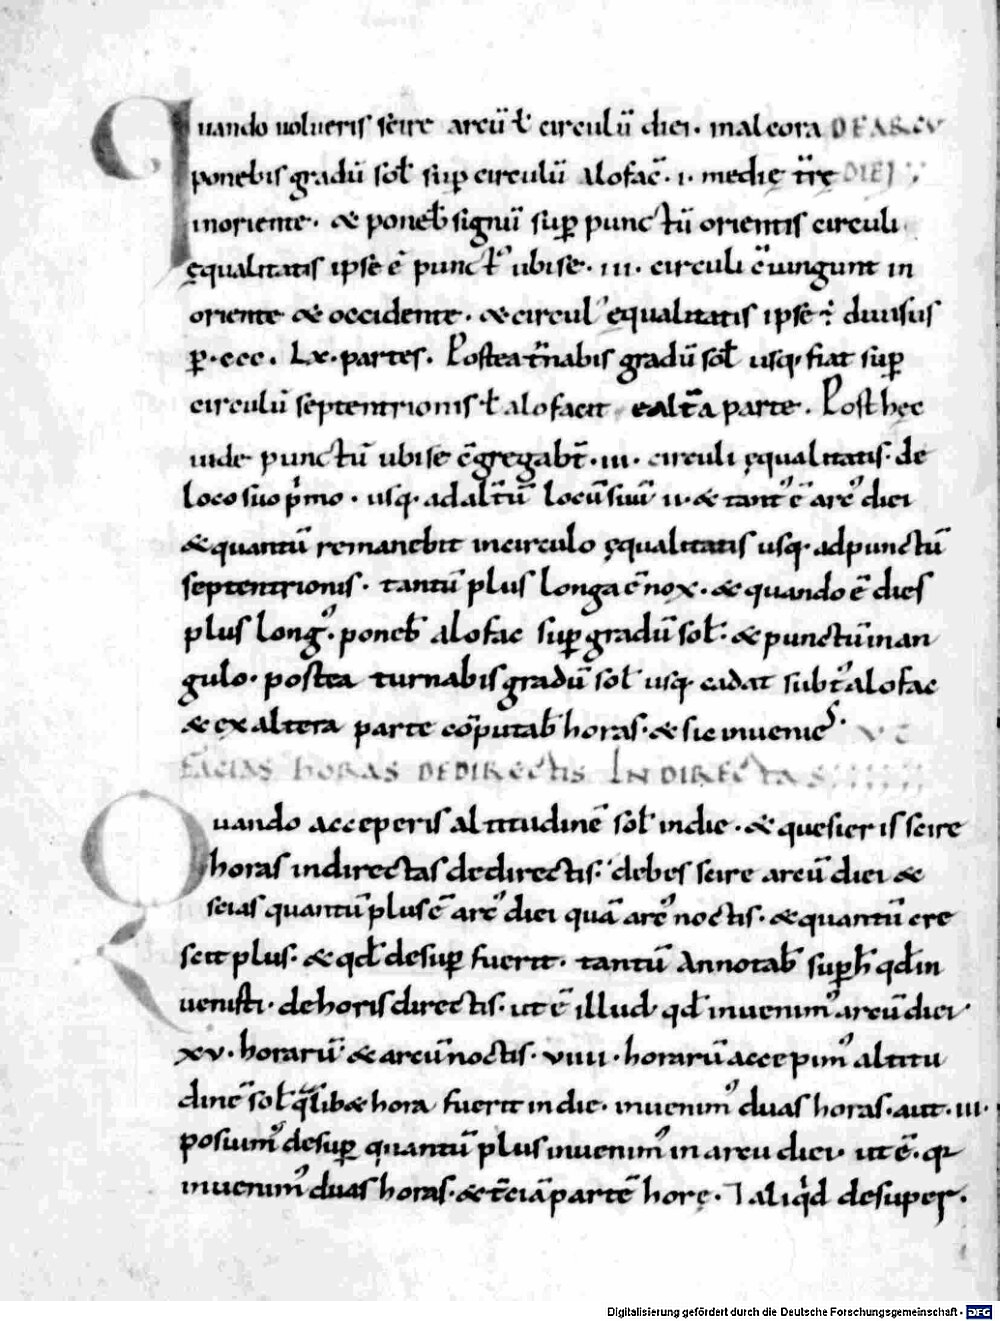 Quando volueris scire arcū ł circulū diei. mal cora DE ARCV
ponebis gradū sol̄ sup circulū alofac̄. i. medię tr̄ę DIEI
in oriente. & poneb̄ signū sup̱ punctū orientis circuli
ęqualitatis ipse ē punct' ubi se. iii. circuli c̄iungunt in
oriente & occidente. & circul' ęqualitatis ipse ÷ divisus
p̱. ccc. Lx. partes. Postea t̄nabis gradū sol̄ usq. fiat sup̱
circulū septentrionis ł alofacit ealt̄a parte. Post hęc
vide punctū ubi se c̄gregabt̄. iii. circuli ęqualitatis. de
loco suo p̄mo. usq. ad alt̄ū locū suū ii. & tant' ē arc' diei
& quantū remanebit in circulo ęqualitatis usq. ad punctū
septentrionis. tantū plus longa ē nox. & quando ē dies
plus long'. poneb̄ alofac sup̱ gradū sol̄. & punctū in an
gulo. postea turnabis gradū sol̄ usq. cadat subt' alofac
& ex altera parte cōputab̄ horas. & sic invenies. VT
FACIAS HORAS DE DIRECTIS INDIRECTAS
Quando acceperis altitudinē sol̄ in die. & quesieris scire
horas indirectas de directis. debes scire arcū diei &
scias quantū plus ē arc' diei quā arc' noctis. & quantū cre
scit plus. & qđ desup̱ fuerit. tantū Annotab̄ sup̱ h̄ qđ in
venisti. de horis directis. ut ē illud qđ invenim' arcū diei
xv. horarū. & arcū noctis. viiii. horarū accepim' altitu
dinē sol̄ q̄lib& hora fuerit in die. invenim' duas horas. aut. iii.
posuim' desup̱ quantū plus invenim' in arcu diei. ut ē. q2
invenim' duas horas. & t̄ciā partē horę. 7 aliq̇d desuper.
Digitalisierung gefördert durch die Deutsche Forschungsgemeinschaft - DFG